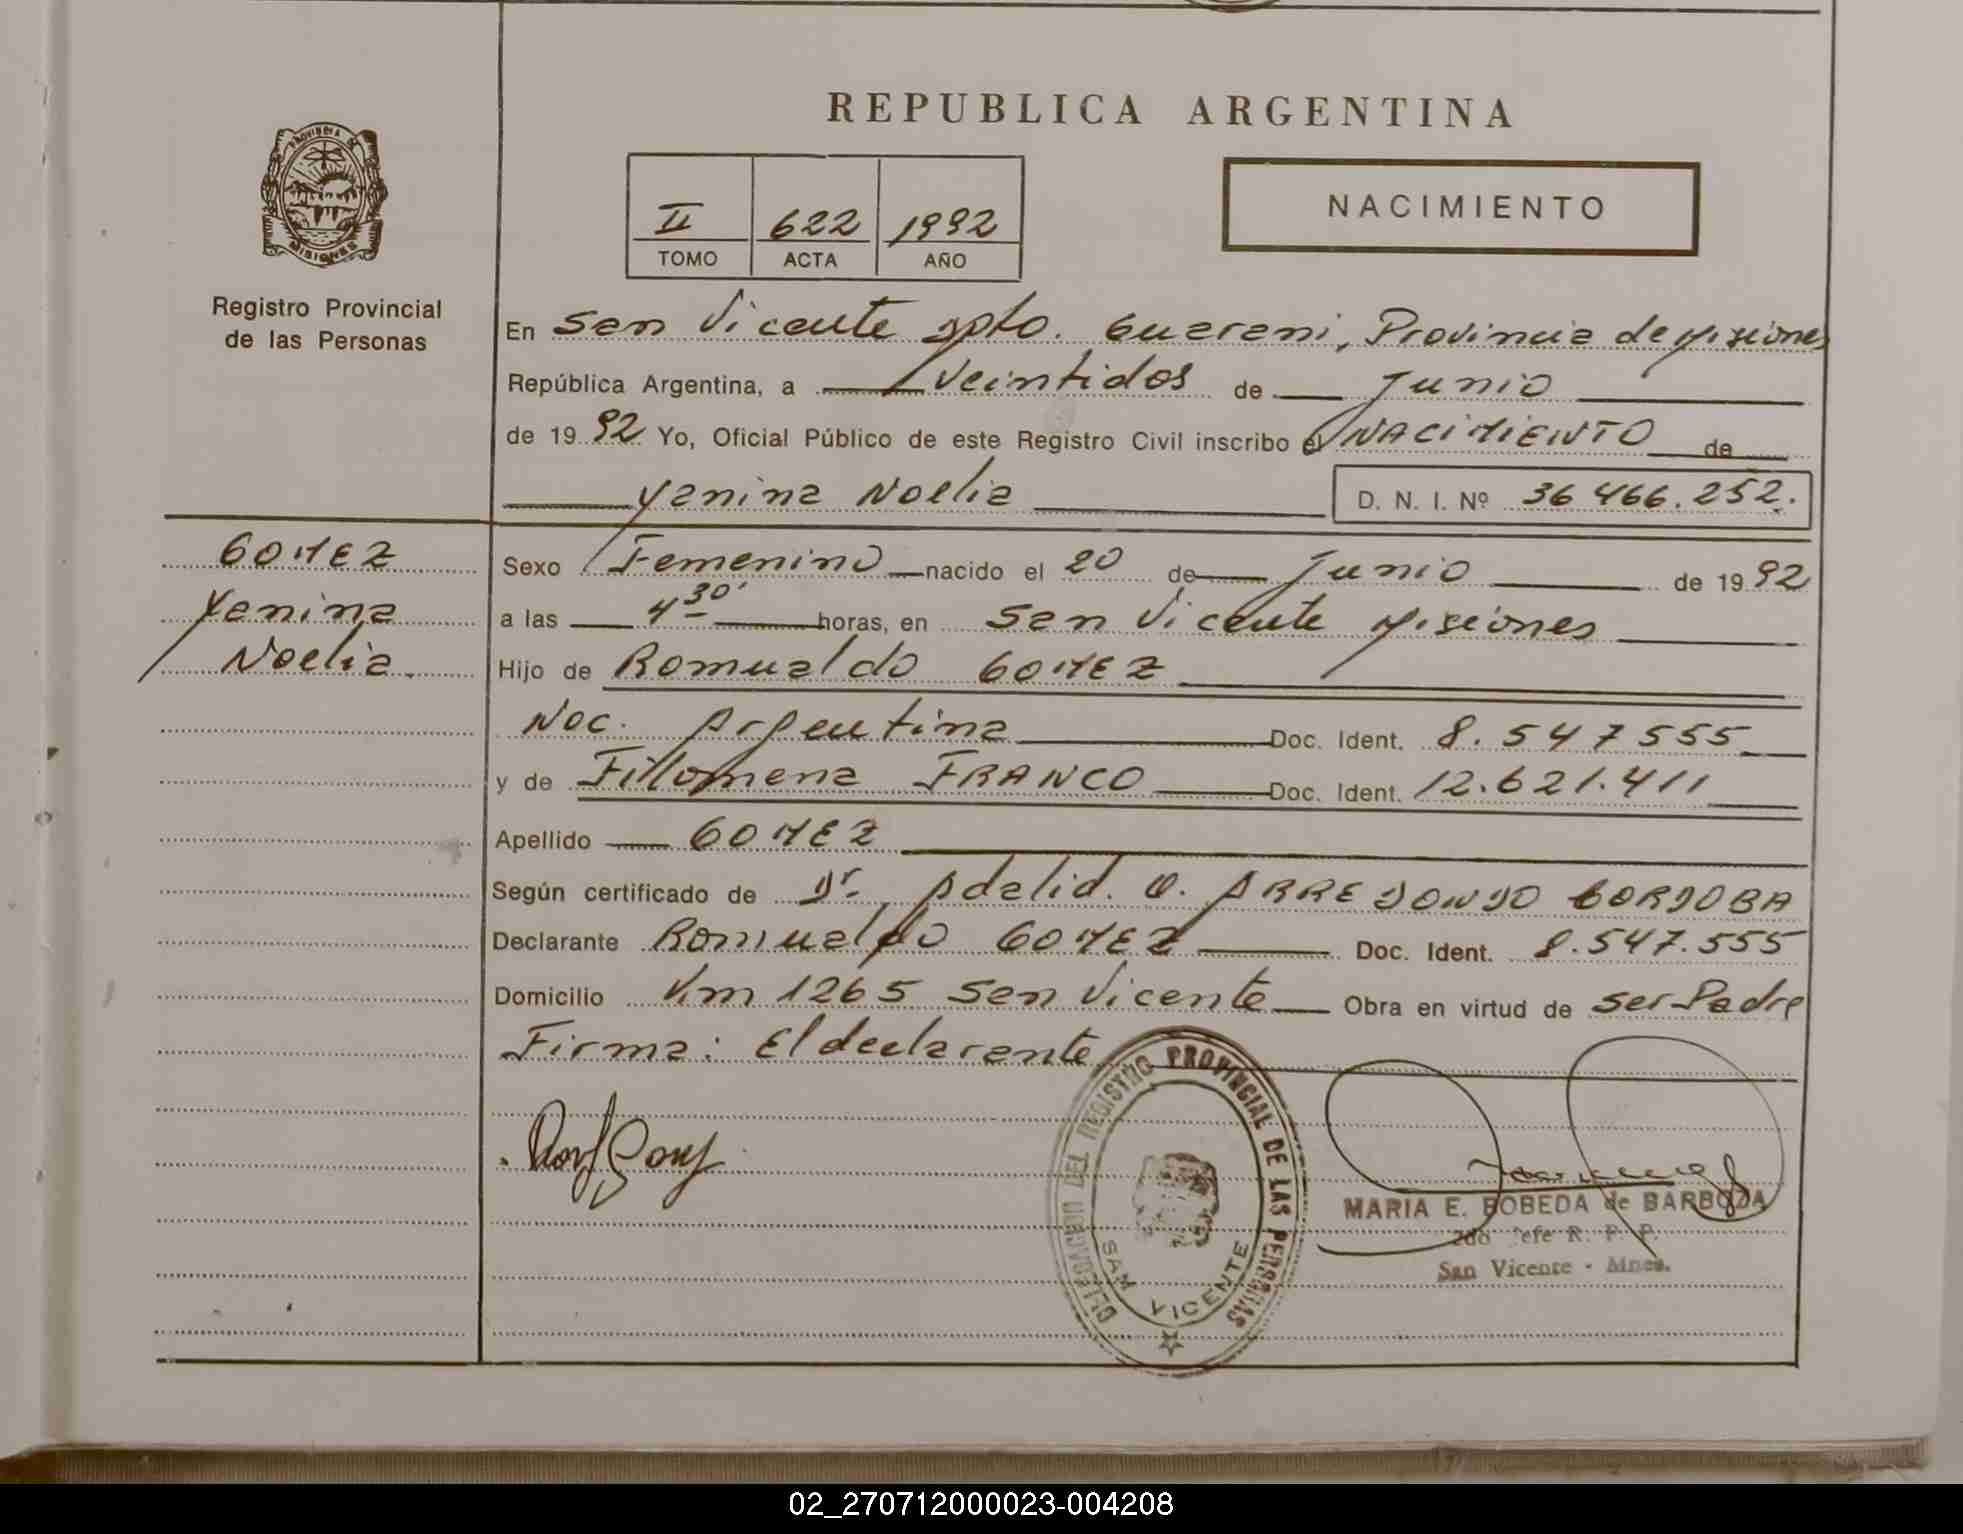 REPUBLICA ARGENTINA
PROVINCIA DE
MISIONES
Registro Provincial
de las Personas
II 622 1992
TOMO ACTA AÑO
NACIMIENTO
En San Vicente Dpto. Guarani, Provincia de Misiones
República Argentina, a Veintidos de Junio
de 1992 Yo, Oficial Público de este Registro Civil inscribo el NACIMIENTO de
Yanina Noelia D. N. I. Nº 36 466.252.
GOMEZ
Yanina
Noelia.
Sexo Femenino nacido el 20 de Junio de 1992
a las 4 30' horas, en San Vicente Misiones
Hijo de Romualdo GOMEZ
Nac. Argentina Doc. Ident. 8.547555
y de Fillomena FRANCO Doc. Ident. 12.621.411
Apellido GOMEZ
Según certificado de Dr. Adalid. O. ARREDONDO CORDOBA
Declarante Romualdo GOMEZ Doc. Ident. 8.547.555
Domicilio Km 1265 San Vicente Obra en virtud de ser Padre
Firma: El declarante
DEL REGISTRO PROVINCIAL DE LAS PERSONAS
SAN VICENTE
MARIA E. BOBEDA de BARBOZA
2do Jefe R. P. P.
San Vicente - Mnes.
02_270712000023-004208